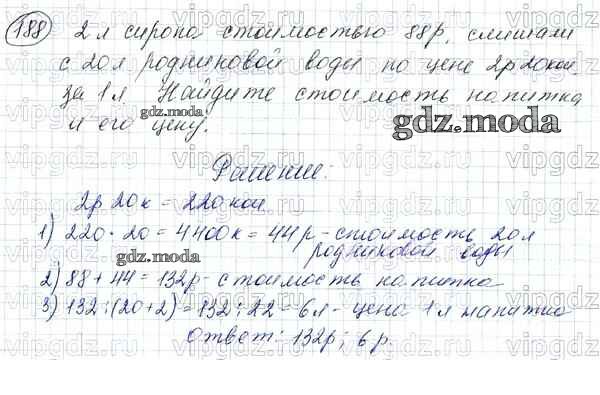 188 2 л сиропа стоимостью 88р. смешали
с 20л родниковой воды по цене 2р 20коп.
за 1 л. Найдите стоимость напитка
и его цену.
gdz.moda
Решение:
2р 20к = 220 коп.
1) 220 · 20 = 4400к = 44р - стоимость 20л
родниковой воды
gdz.moda
2) 88 + 44 = 132р - стоимость напитка
3) 132 : (20+2) = 132 : 22 = 6л - цена 1л напитка
gdz.moda
Ответ: 132р; 6р.